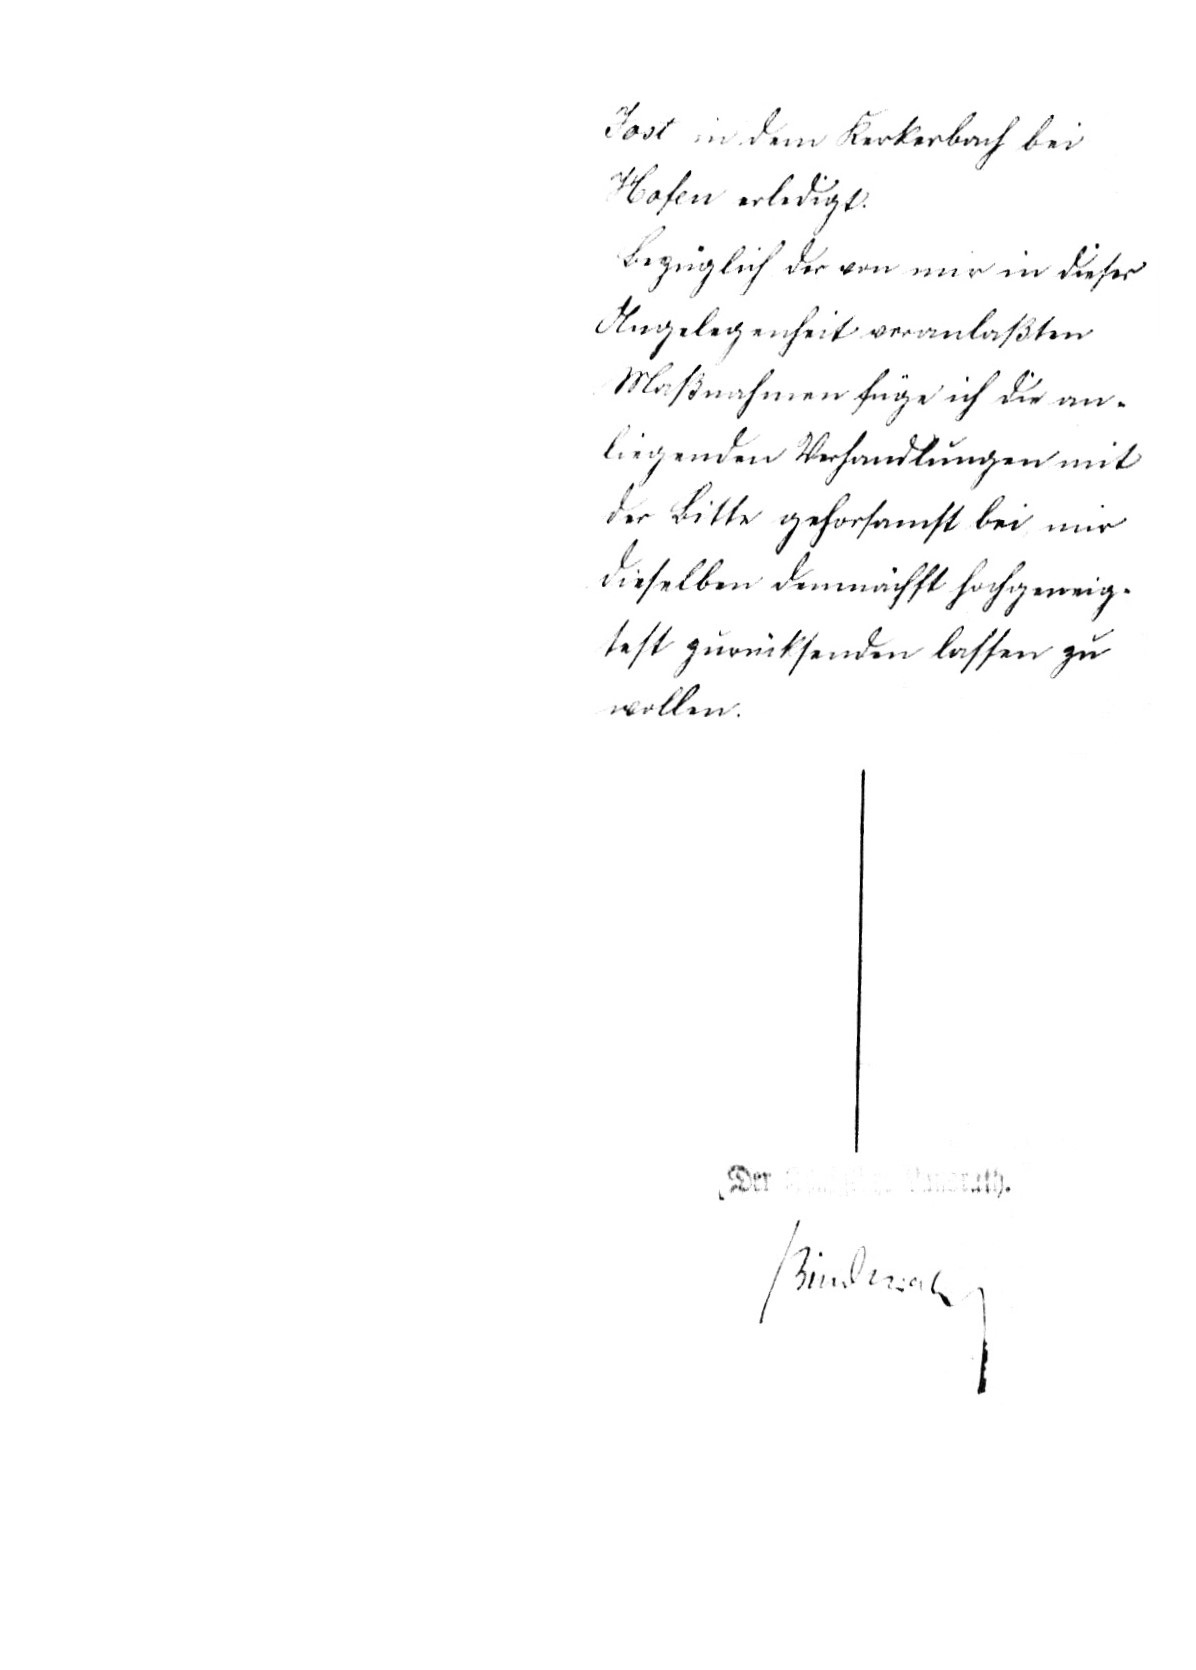 Jost in dem Kerkerbach bei
Hofen erledigt.
Bezüglich der von mir in dieser
Angelegenheit veranlaßten
Maßnahmen füge ich die an-
liegenden Verhandlungen mit
der Bitte gehorsamst bei, mir
dieselben demnächst hochgeneig-
test zurücksenden lassen zu
wollen.
Der Königliche Landrath.